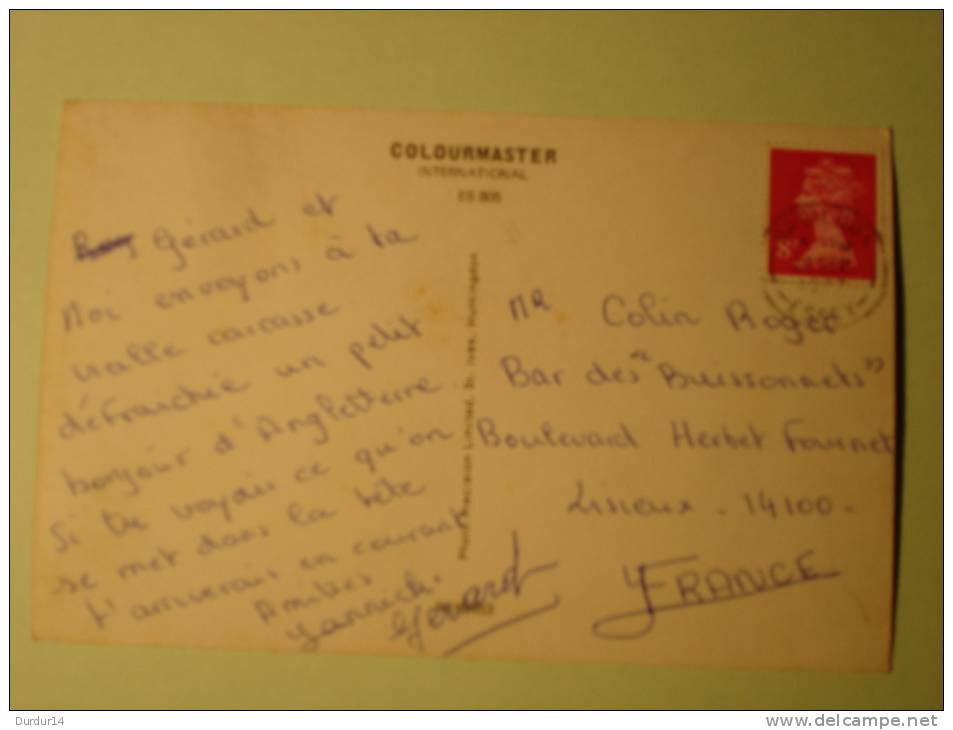 COLOURMASTER
INTERNATIONAL
ES 805
Gérard et
Moi envoyons à ta
vialle carcasse
défraichie un petit
bonjour d'Angleterre.
Si tu voyais ce qu'on
se met dans la tête
t'arriverais en courant
Amitiés
Yannick.
Gérard
Photo Precision Limited, St. Ives, Huntingdon
Mr Colin Roger
Bar des "Buissonnets"
Boulevard Herbet Fournet
Lisieux - 14100 -
FRANCE
8P
Durdur14
www.delcampe.net